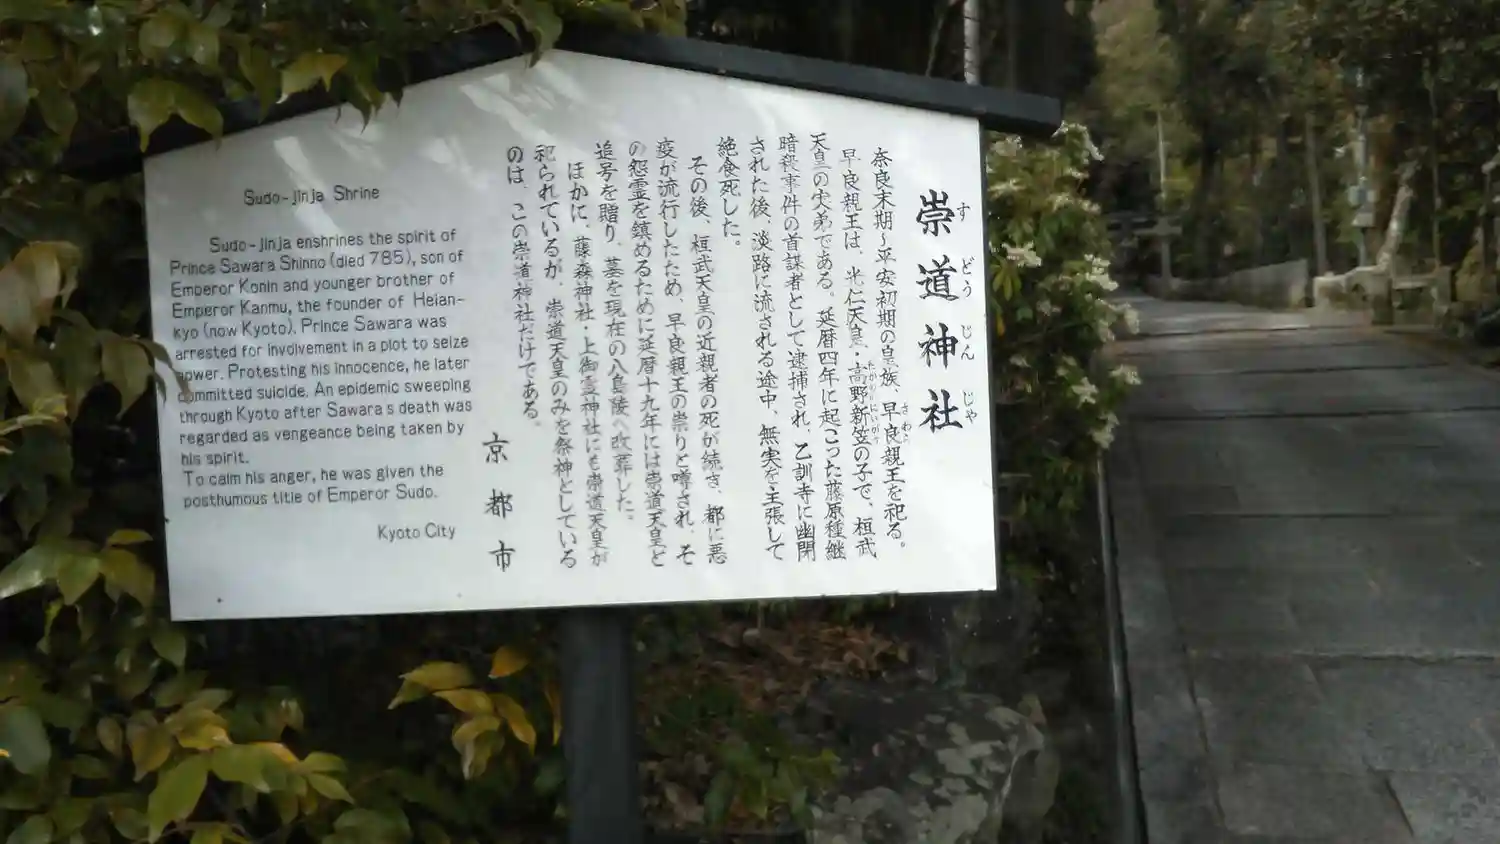 Sudo-Jinja Shrine
Sudo-Jinja enshrines the spirit of
Prince Sawara Shinno (died 785), son of
Emperor Konin and younger brother of
Emperor Kanmu, the founder of Heian-
kyo (now Kyoto). Prince Sawara was
arrested for involvement in a plot to seize
power. Protesting his innocence, he later
committed suicide. An epidemic sweeping
through Kyoto after Sawara's death was
regarded as vengeance being taken by
his spirit.
To calm his anger, he was given the
posthumous title of Emperor Sudo.
Kyoto City
崇道神社
すどうじんじゃ
奈良末期〜平安初期の皇族、早良親王を祀る。
さわら
早良親王は、光仁天皇・高野新笠の子で、桓武
たかのにいがさ
天皇の実弟である。延暦四年に起こった藤原種継
暗殺事件の首謀者として逮捕され、乙訓寺に幽閉
された後、淡路に流される途中、無実を主張して
絶食死した。
その後、桓武天皇の近親者の死が続き、都に悪
疫が流行したため、早良親王の祟りと噂され、そ
の怨霊を鎮めるために延暦十九年には崇道天皇と
追号を贈り、墓を現在の八島陵へ改葬した。
ほかに、藤森神社・上御霊神社にも崇道天皇が
祀られているが、崇道天皇のみを祭神としている
のは、この崇道神社だけである。
京都市